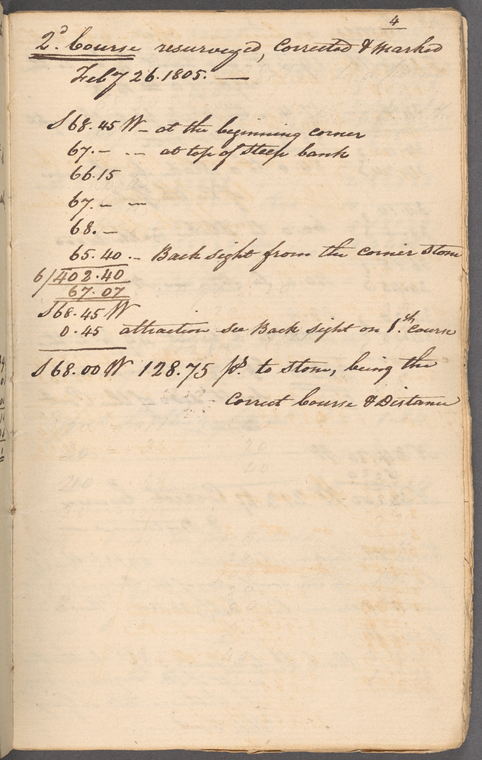 4
2d. Course resurveyed, Corrected & Marked
Feby 26. 1805. —
S 68. 45 W — at the beginning corner
67. – – – at top of steep bank
66. 15
67. – –
68. –
65. 40 – Back sight from the corner stone
6/402. 40
67. 07
S 68. 45 W
0. 45 attraction see Back sight on 1st. Course
S 68. 00 W 128. 75 ps to stone, being the
Correct Course & Distance